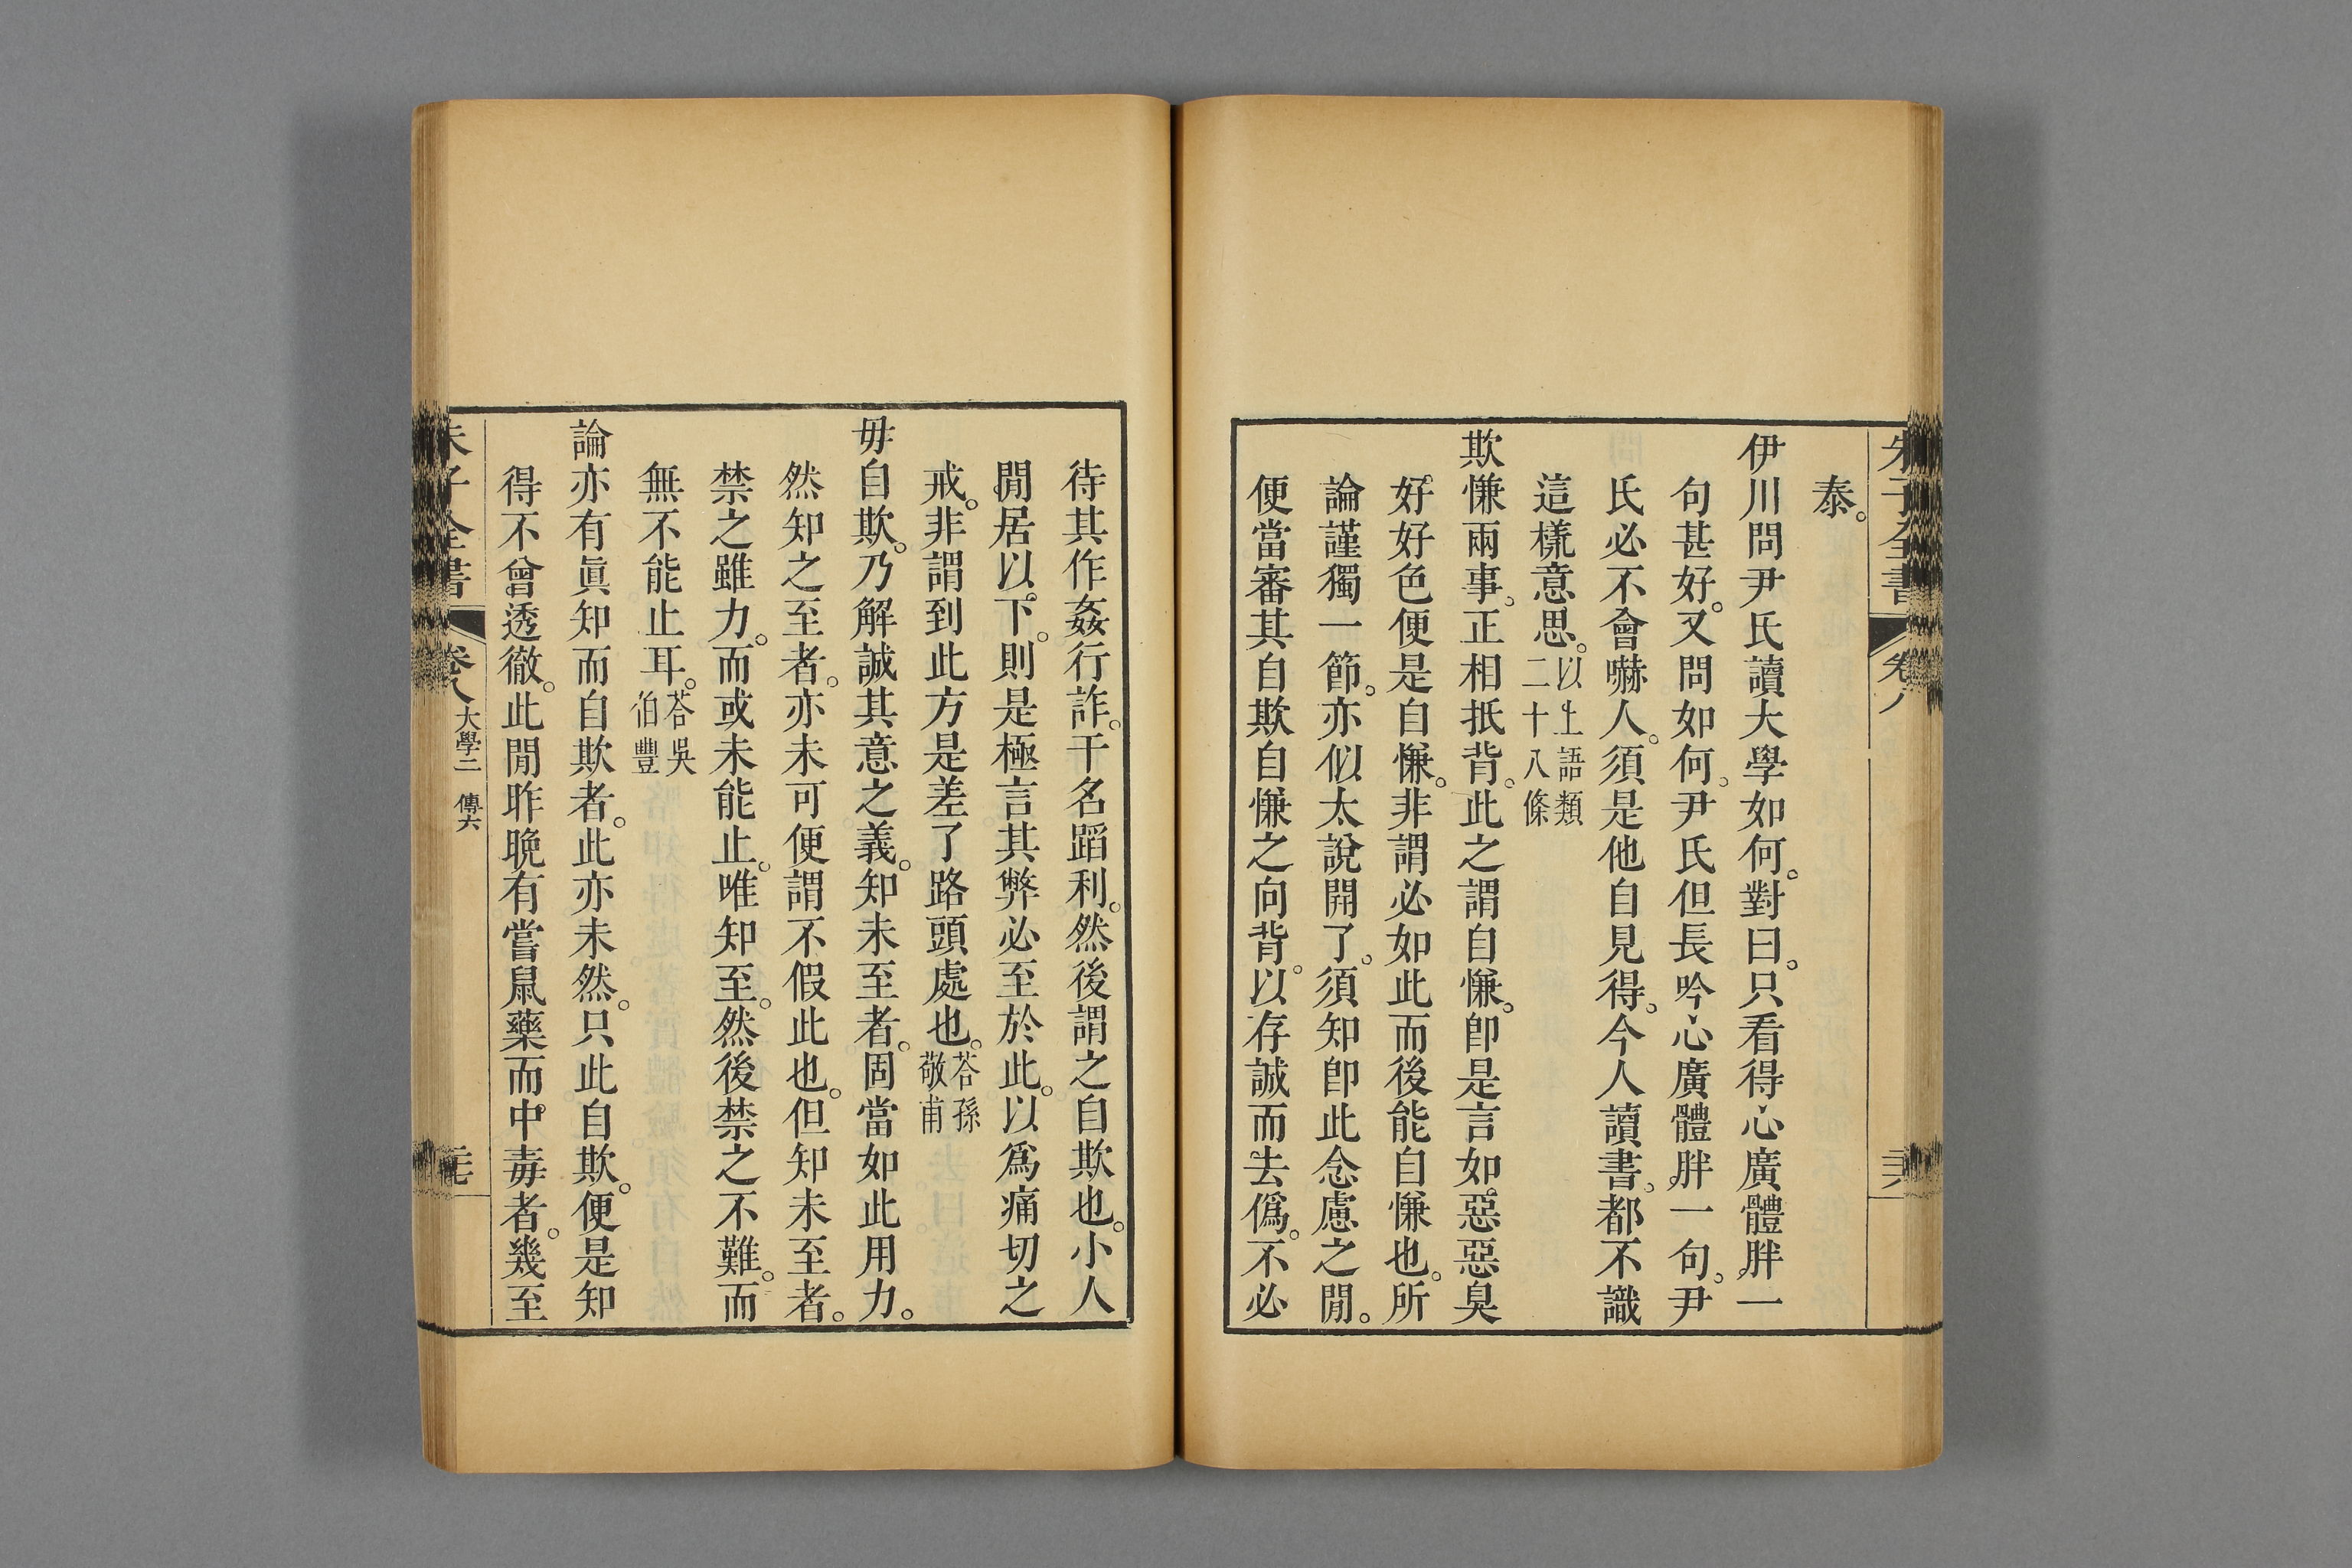 朱子全書 卷八 二十六
泰。
伊川問尹氏讀大學如何。對曰。只看得心廣體胖一
句甚好。又問如何。尹氏但長吟心廣體胖一句。尹
氏必不會嚇人。須是他自見得。今人讀書。都不識
這㨾意思。以上語類二十八條
欺慊兩事。正相抵背。此之謂自慊。卽是言如惡惡臭
好好色便是自慊。非謂必如此而後能自慊也。所
論謹獨一節。亦似太說開了。須知卽此念慮之閒。
便當審其自欺自慊之向背。以存誠而去僞。不必
待其作姦行詐。干名蹈利。然後謂之自欺也。小人
閒居以下。則是極言其弊必至於此。以爲痛切之
戒。非謂到此方是差了路頭處也。荅孫敬甫
毋自欺。乃解誠其意之義。知未至者。固當如此用力。
然知之至者。亦未可便謂不假此也。但知未至者。
禁之雖力。而或未能止。唯知至。然後禁之不難。而
無不能止耳。荅吳伯豐
論亦有眞知而自欺者。此亦未然。只此自欺。便是知
得不曾透徹。此閒昨晚有嘗鼠藥而中毒者。幾至
朱子全書 卷八 大學二 傳六 二十七